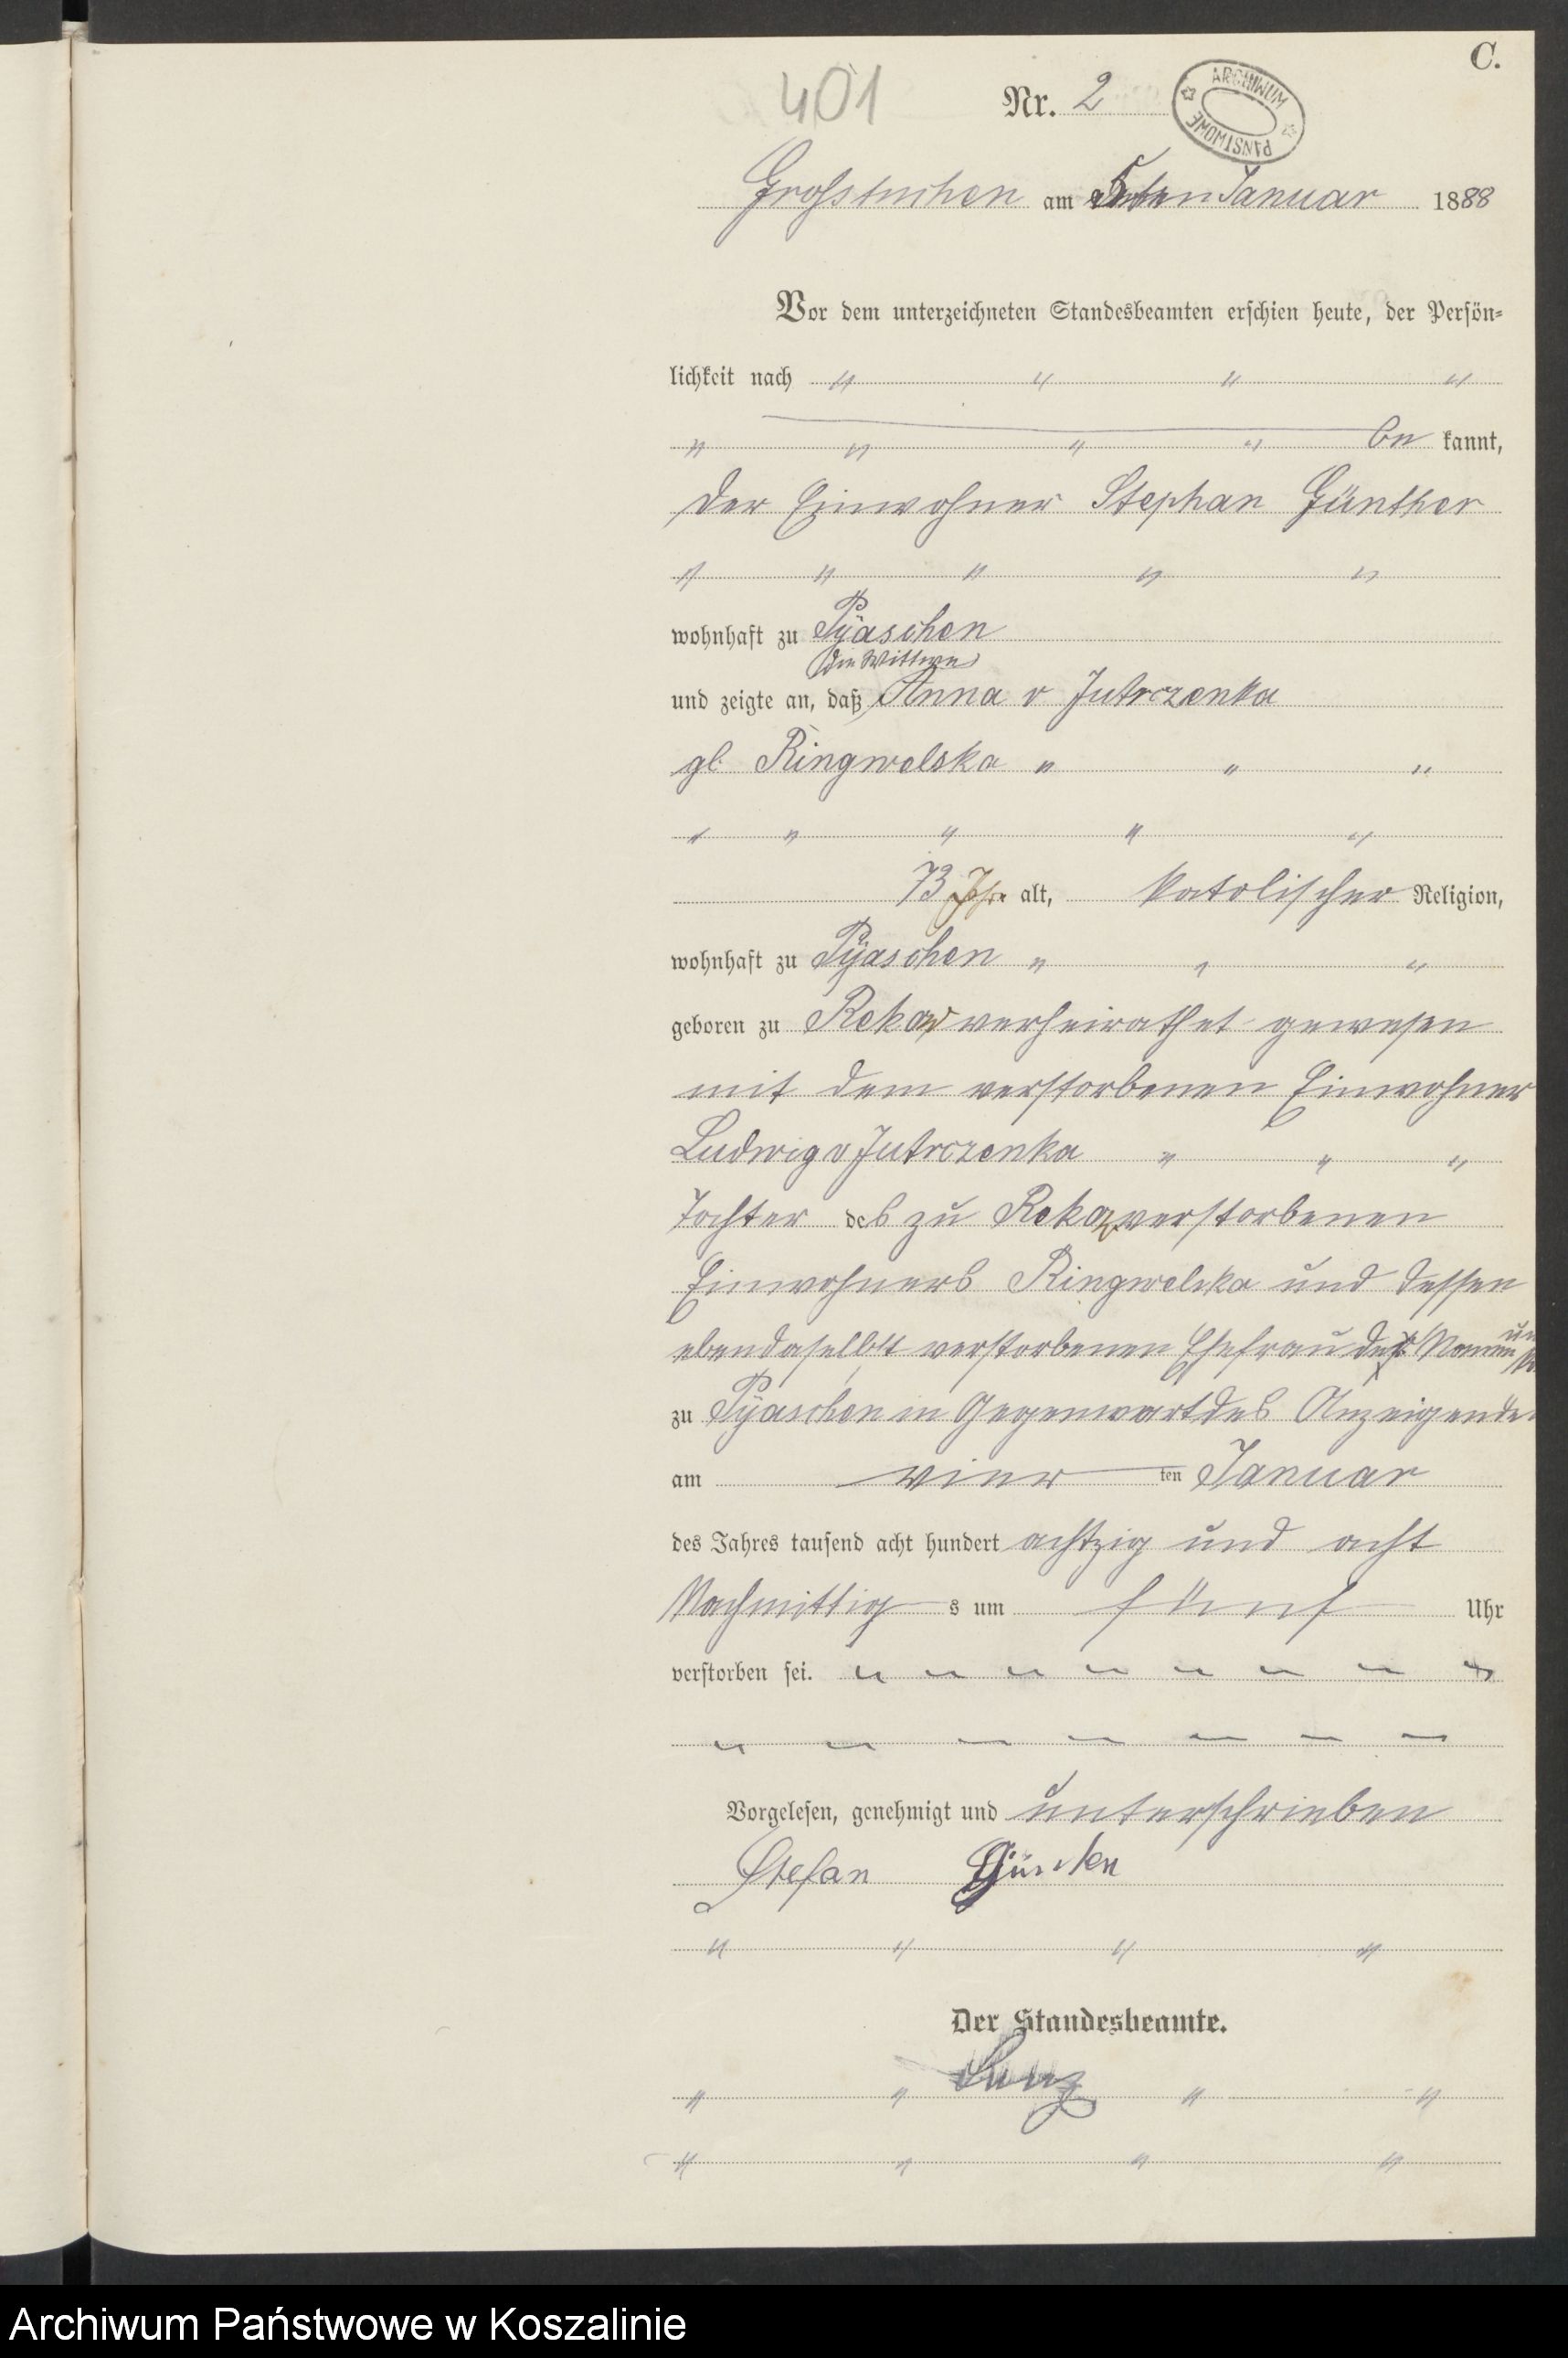 C.
401
Nr. 2
ARCHIWUM PAŃSTWOWE
Grosstuchen am 5ten Januar 1888
Vor dem unterzeichneten Standesbeamten erschien heute, der Persön-
lichkeit nach " " " "
" " " " be kannt,
der Einwohner Stephan Günther
" " " " "
wohnhaft zu Pÿaschen
die Wittwe
und zeigte an, daß Anna v Jutrczenka
gb Ringwelska " " "
" " " " "
73 Jahre alt, katolischer Religion,
wohnhaft zu Pÿaschen " " "
geboren zu Rekow verheirathet gewesen
mit dem verstorbenen Einwohner
Ludwig v Jutrczenka " " "
Tochter des zu Rekow verstorbenen
Einwohners Ringwelska und dessen
ebendaselbst verstorbenen Ehefrau Namen
zu Pÿaschen in Gegenwart des Anzeigenden
am vier ten Januar
des Jahres tausend acht hundert achtzig und acht
Nachmittag s um fünf Uhr
verstorben sei.
Vorgelesen, genehmigt und unterschrieben
Stefan
" " " "
Der Standesbeamte.
" " " "
" " " "
Archiwum Państwowe w Koszalinie